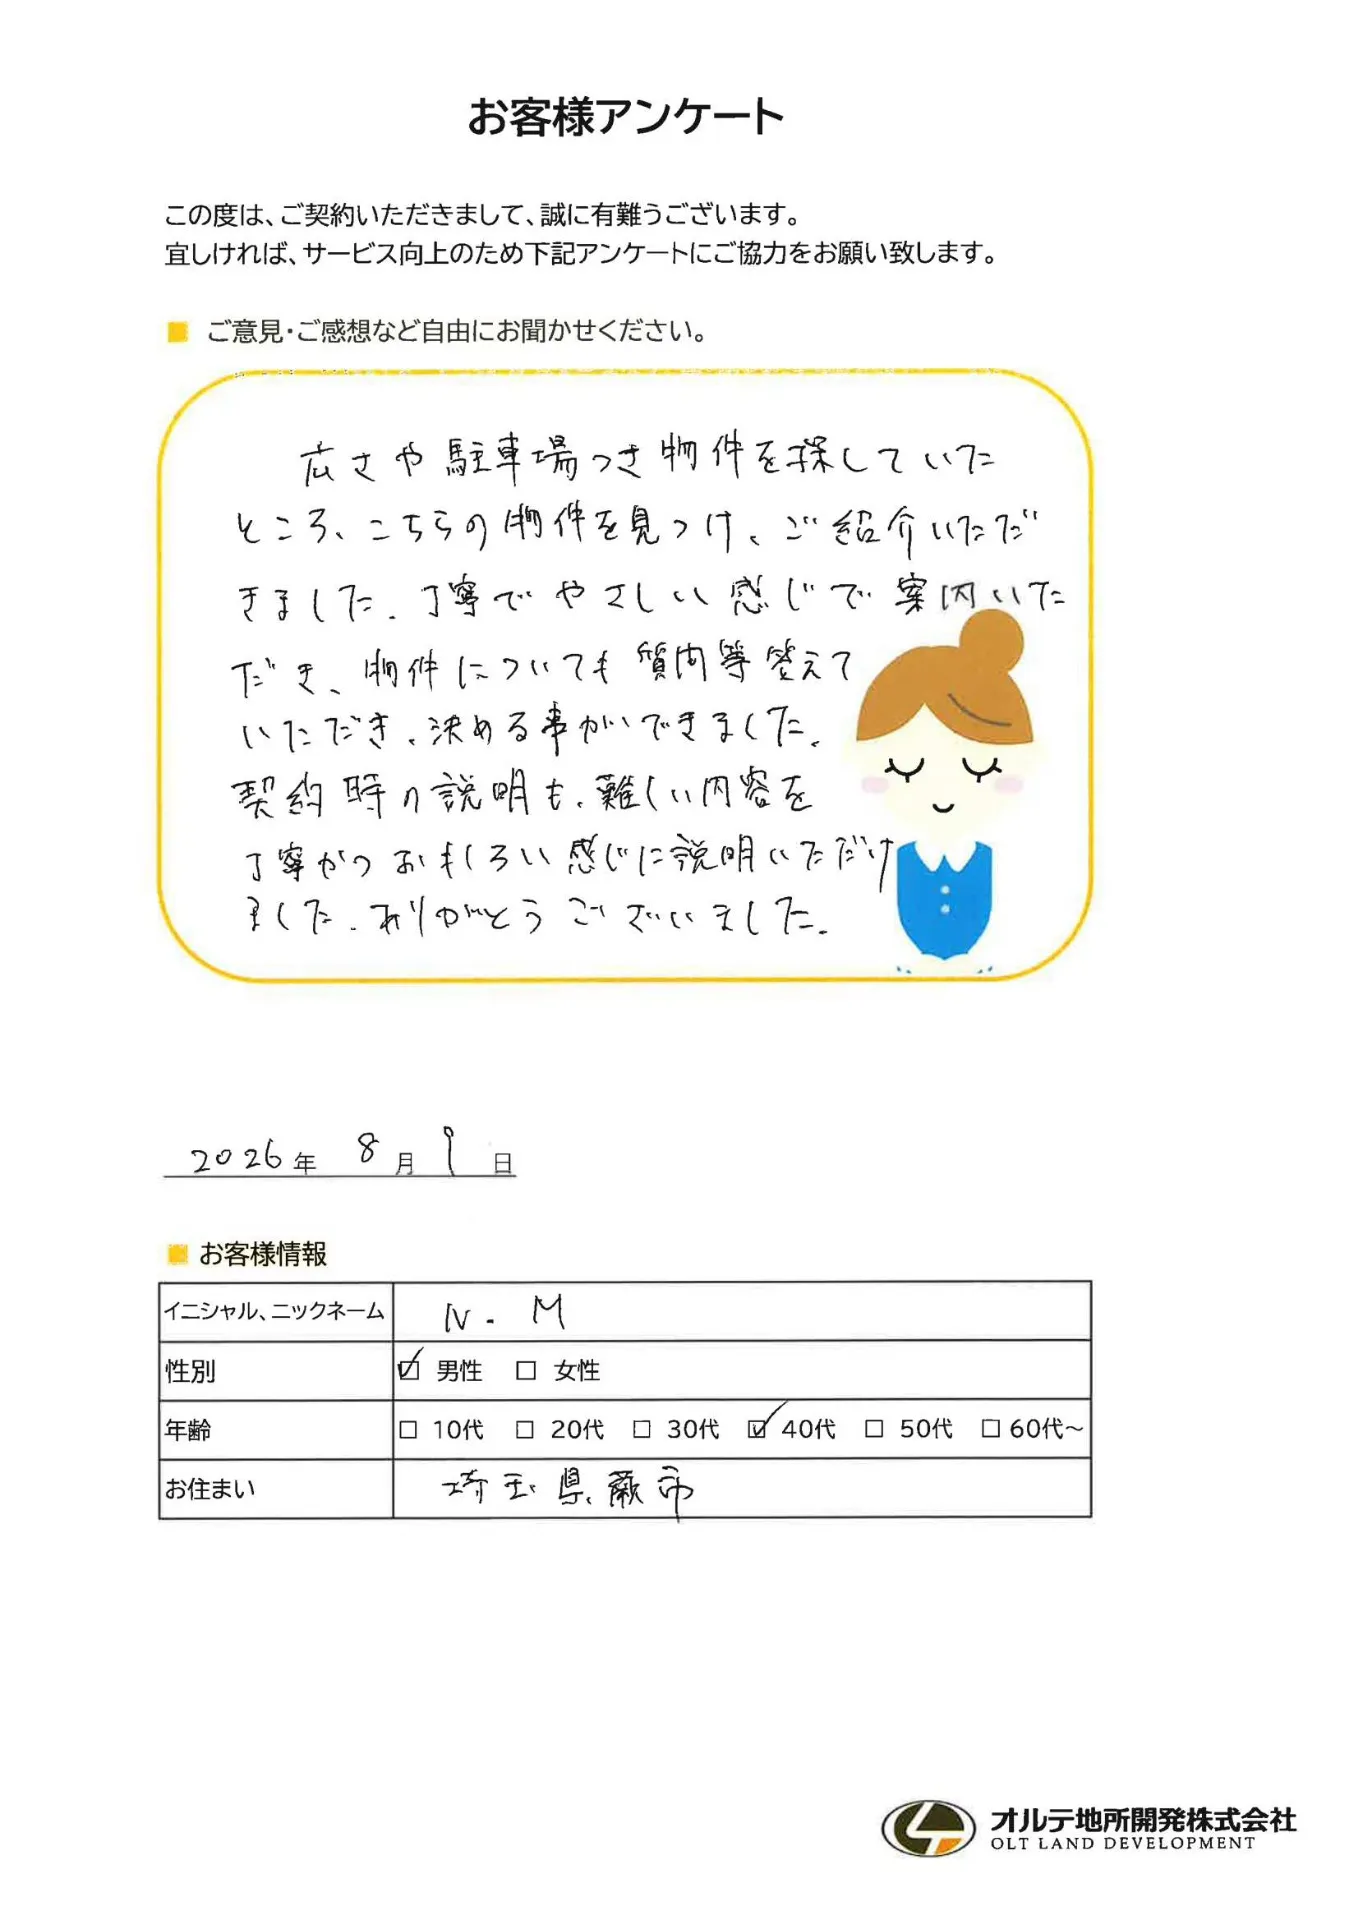 お客様アンケート
この度は、ご契約いただきまして、誠に有難うございます。
宜しければ、サービス向上のため下記アンケートにご協力をお願い致します。
■ ご意見・ご感想など自由にお聞かせください。
広さや駐車場つき物件を探していた
ところ、こちらの物件を見つけ、ご紹介いただ
きました。丁寧でやさしい感じで案内いた
だき、物件についても質問等答えて
いただき、決める事ができました。
契約時の説明も、難しい内容を
丁寧かつおもしろい感じに説明いただけ
ました。ありがとうございました。
2026年 8月 9日
■ お客様情報
イニシャル、ニックネーム N.M
性別 ☑ 男性 □ 女性
年齢 □ 10代 □ 20代 □ 30代 ☑ 40代 □ 50代 □ 60代～
お住まい 埼玉県蕨市
オルテ地所開発株式会社
OLT LAND DEVELOPMENT